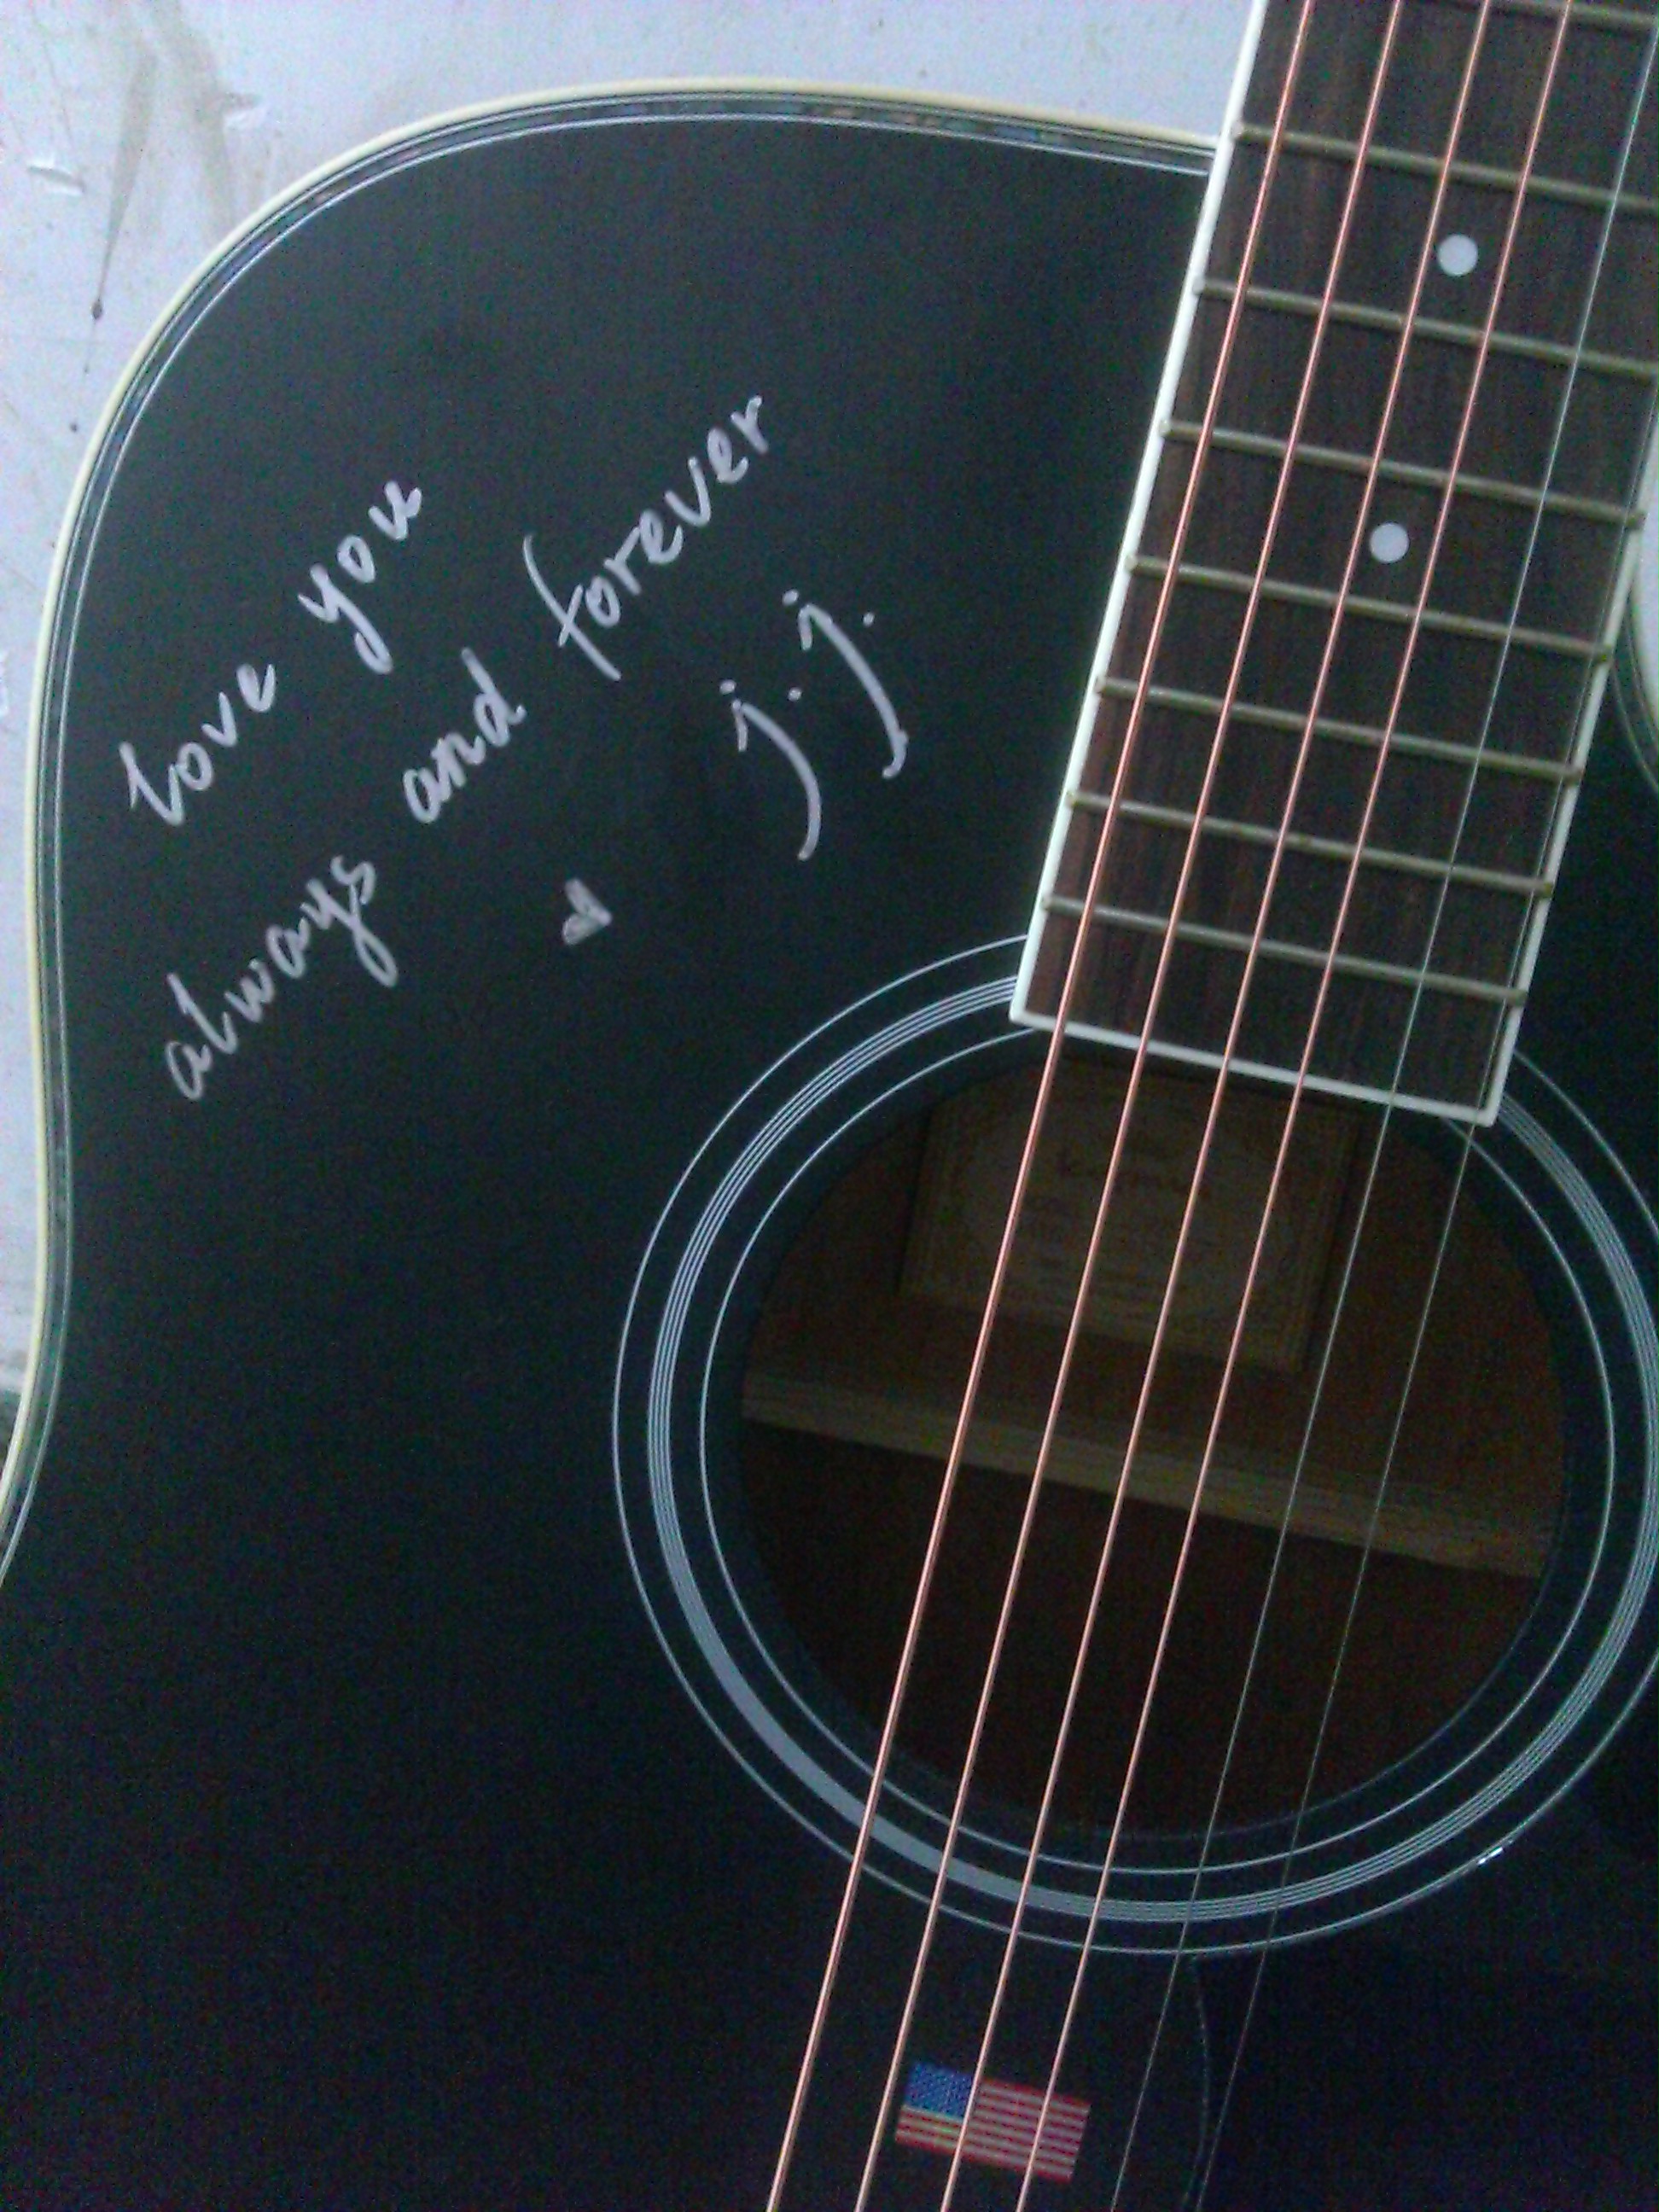 love you
always and forever
j.j.